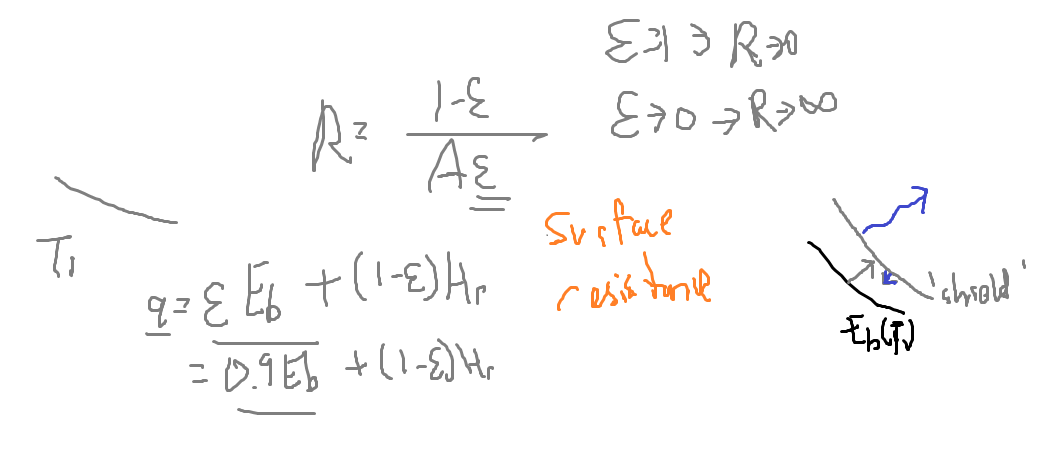 ε→1 → R→0
ε→0 → R→∞
R = (1-ε)/(Aε)
T₁
Surface
resistance
q = ε E_b + (1-ε)H_r
= 0.9E_b + (1-ε)H_r
E_b(T₁)